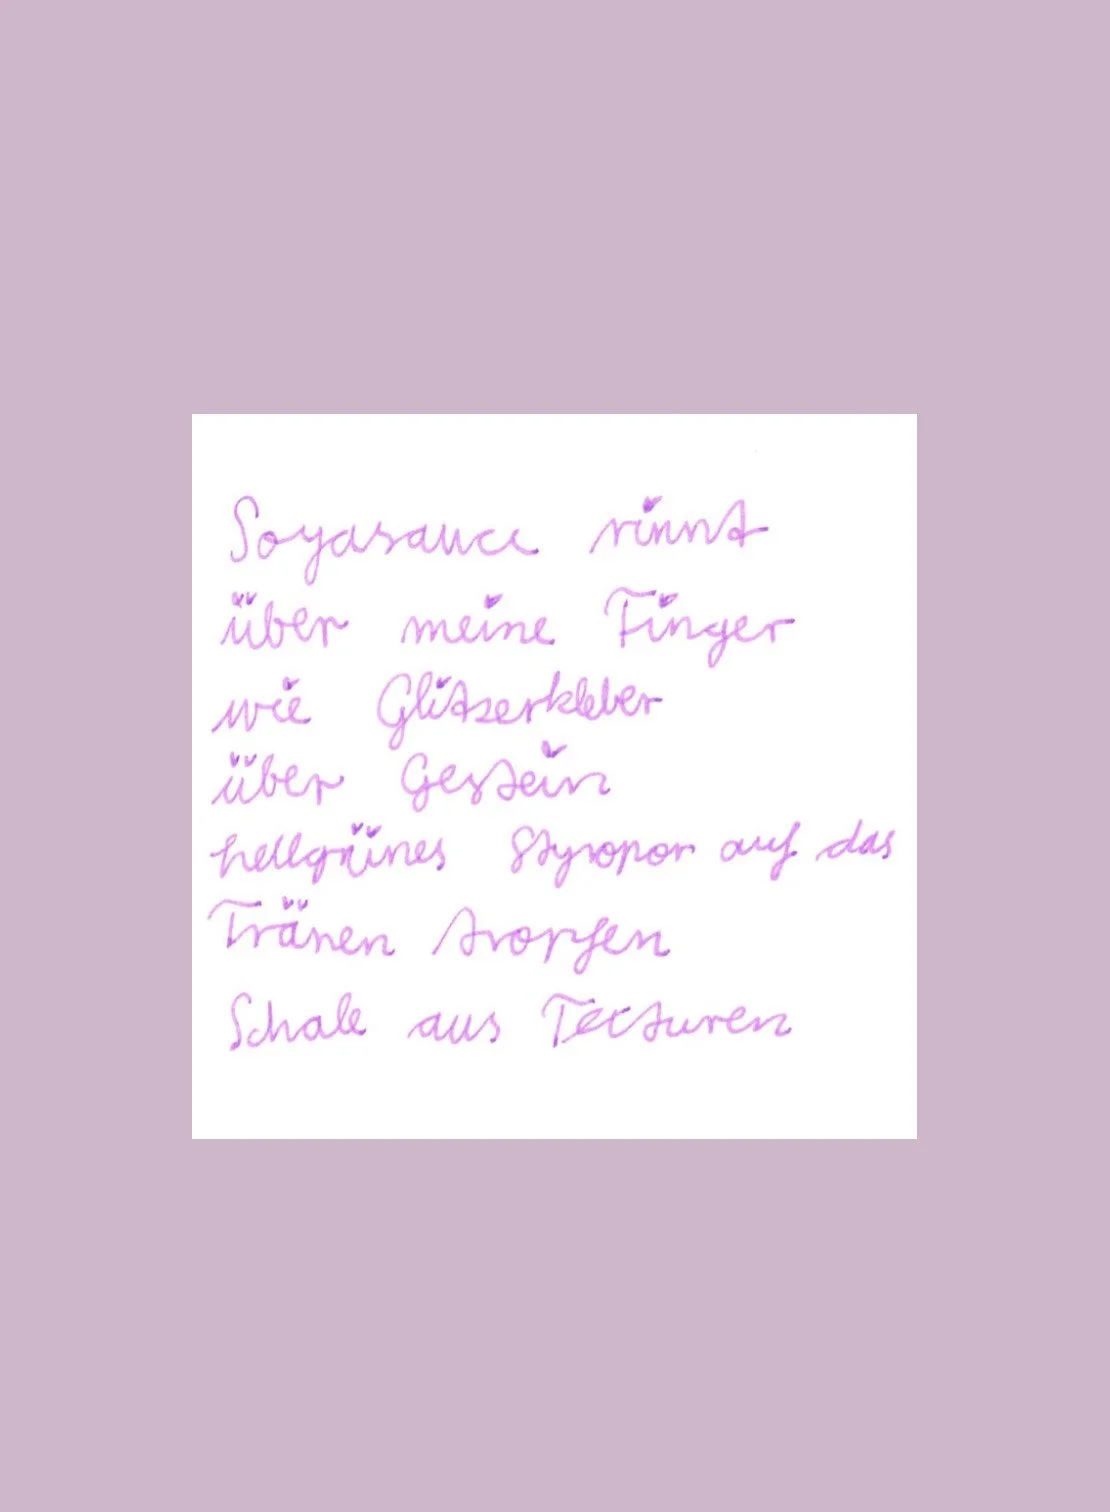 Soyasauce rinnt
über meine Finger
wie Glitzerkleber
über Gestein
hellgrünes Styropor auf das
Tränen tropfen
Schale aus Tecturen